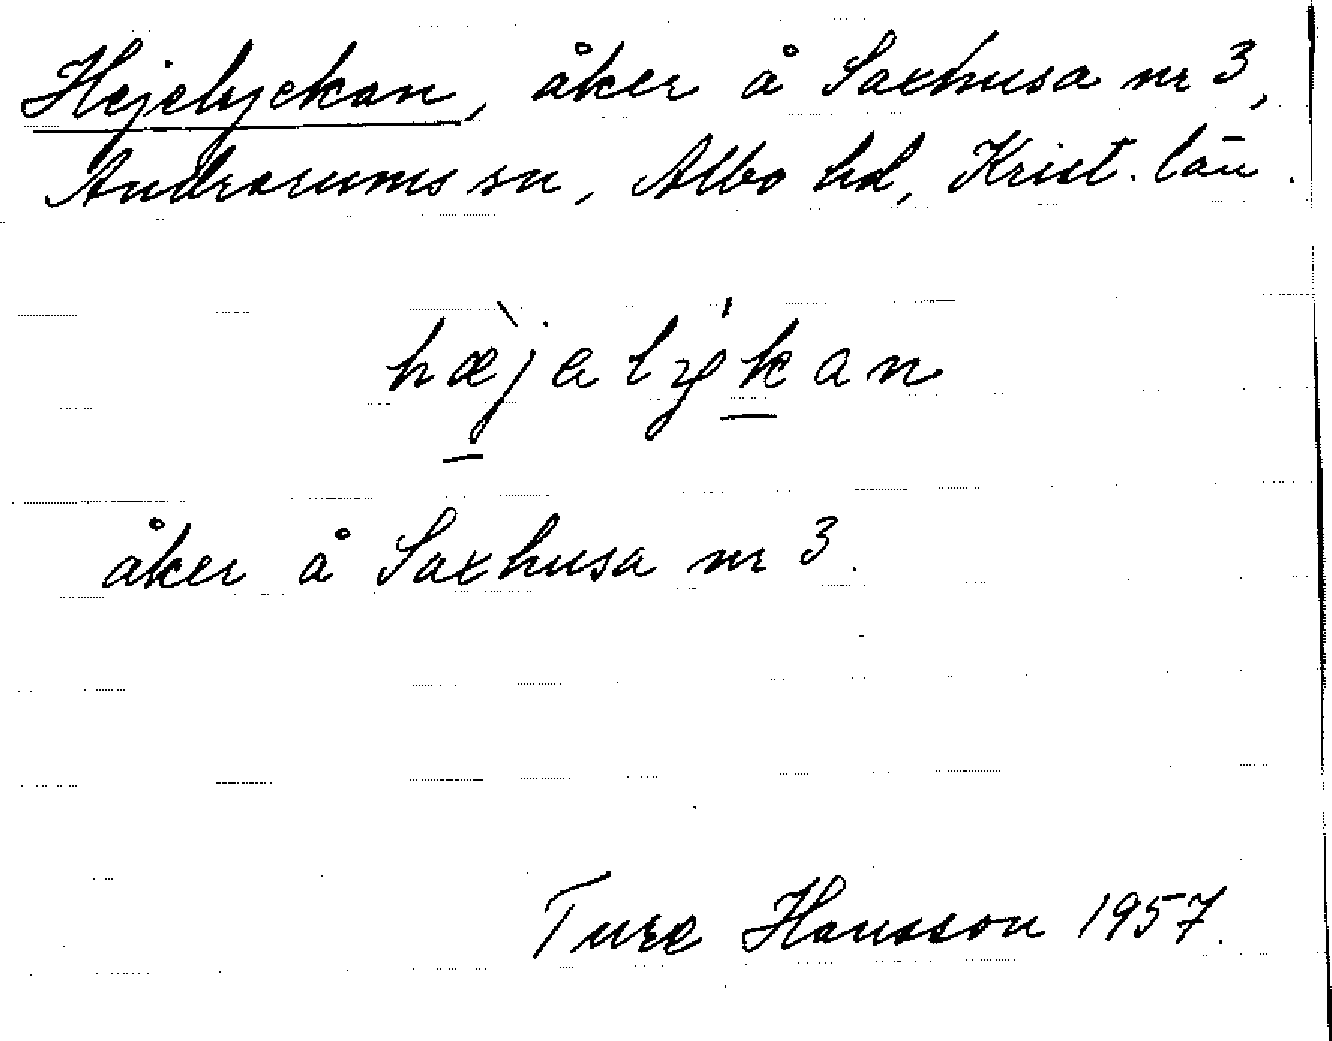 Hejelyckan, åker å Saxhusa nr 3,
Andrarums sn, Albo hd, Krist. län.
hæ̀jalýkan
åker å Saxhusa nr 3.
Ture Hansson 1957.